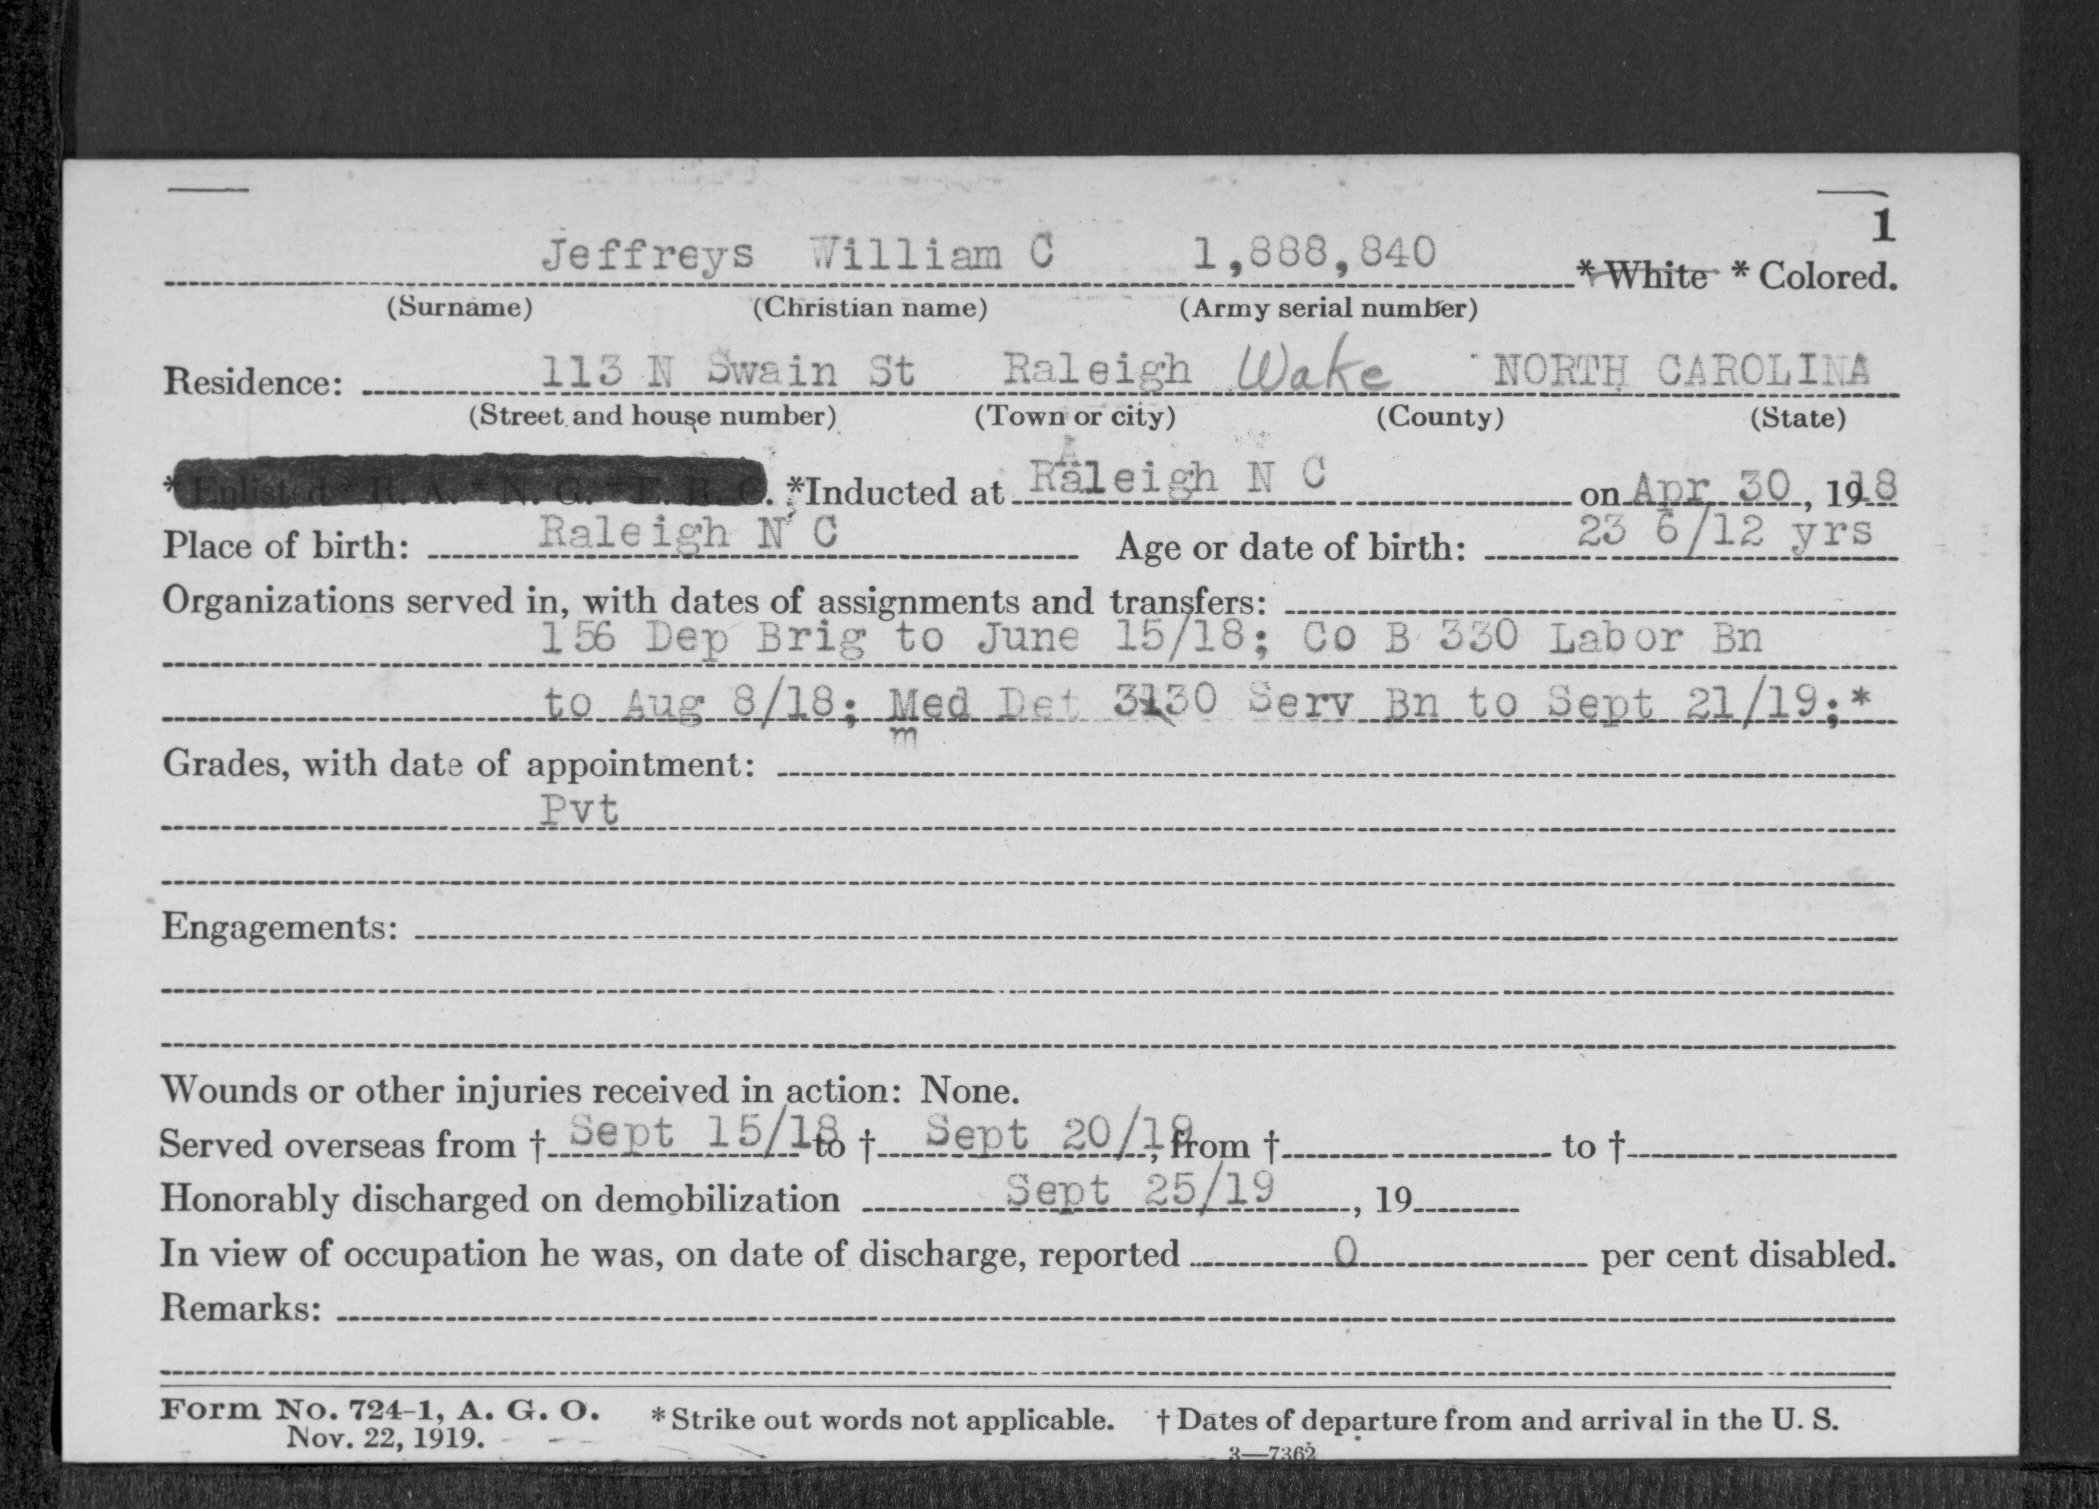 1
Jeffreys William C 1,888,840 *White * Colored.
(Surname) (Christian name) (Army serial number)
Residence: 113 N Swain St Raleigh Wake NORTH CAROLINA
(Street and house number) (Town or city) (County) (State)
*Enlisted R. A. * N. G. * E. R. C. *Inducted at Raleigh N C on Apr 30, 1918
Place of birth: Raleigh N C Age or date of birth: 23 6/12 yrs
Organizations served in, with dates of assignments and transfers:
156 Dep Brig to June 15/18; Co B 330 Labor Bn
to Aug 8/18; Med Det 330 Serv Bn to Sept 21/19;*
Grades, with date of appointment:
Pvt
Engagements:
Wounds or other injuries received in action: None.
Served overseas from † Sept 15/18 to † Sept 20/19, from † to †
Honorably discharged on demobilization Sept 25/19, 19
In view of occupation he was, on date of discharge, reported 0 per cent disabled.
Remarks:
Form No. 724-1, A. G. O. *Strike out words not applicable. † Dates of departure from and arrival in the U. S.
Nov. 22, 1919.
3—7362